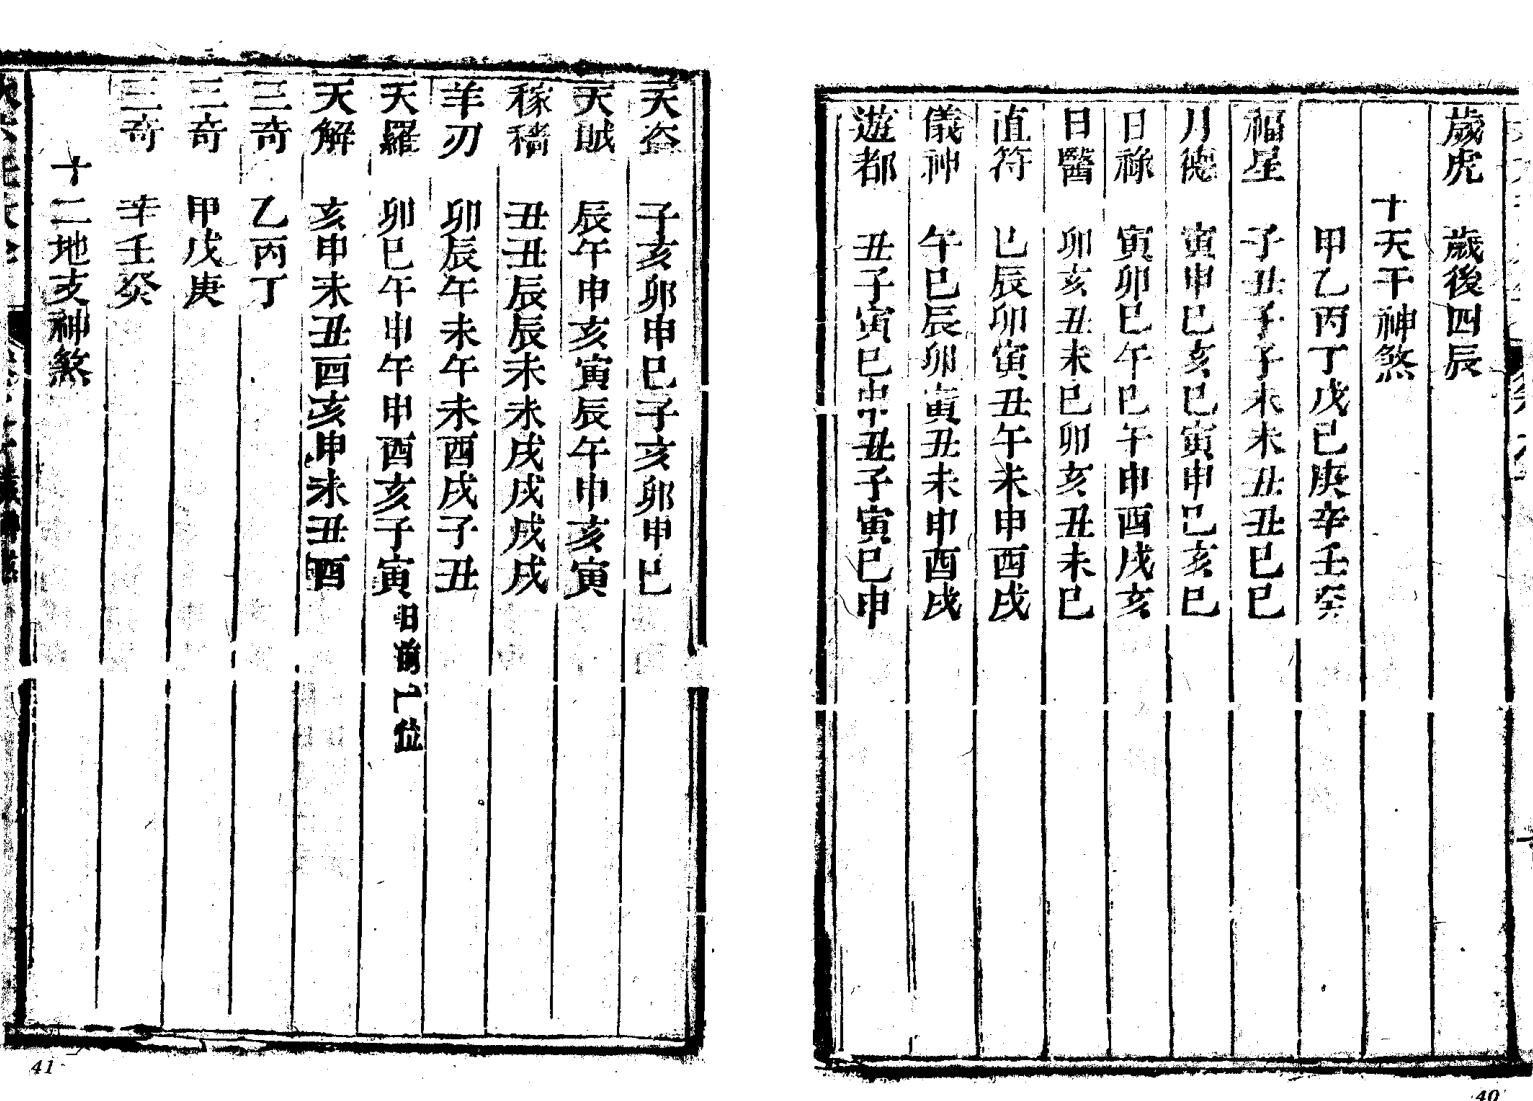 歲虎　歲後四辰
十天干神煞
甲乙丙丁戊己庚辛壬癸
福星　子丑子子未未丑丑巳巳
月德　寅申巳亥巳寅申巳亥巳
日祿　寅卯巳午巳午申酉戌亥
日醫　卯亥丑未巳卯亥丑未巳
直符　巳辰卯寅丑午未申酉戌
儀神　午巳辰卯寅丑未申酉戌
遊都　丑子寅巳申丑子寅巳申
40
天盜　子亥卯申巳子亥卯申巳
天賊　辰午申亥寅辰午申亥寅
稼穡　丑丑辰辰未未戌戌戌戌
羊刃　卯辰午未午未酉戌子丑
天羅　卯巳午申午申酉亥子寅 祿前一位
天解　亥申未丑酉亥申未丑酉
三奇　乙丙丁
三奇　甲戊庚
三奇　辛壬癸
十二地支神煞
41